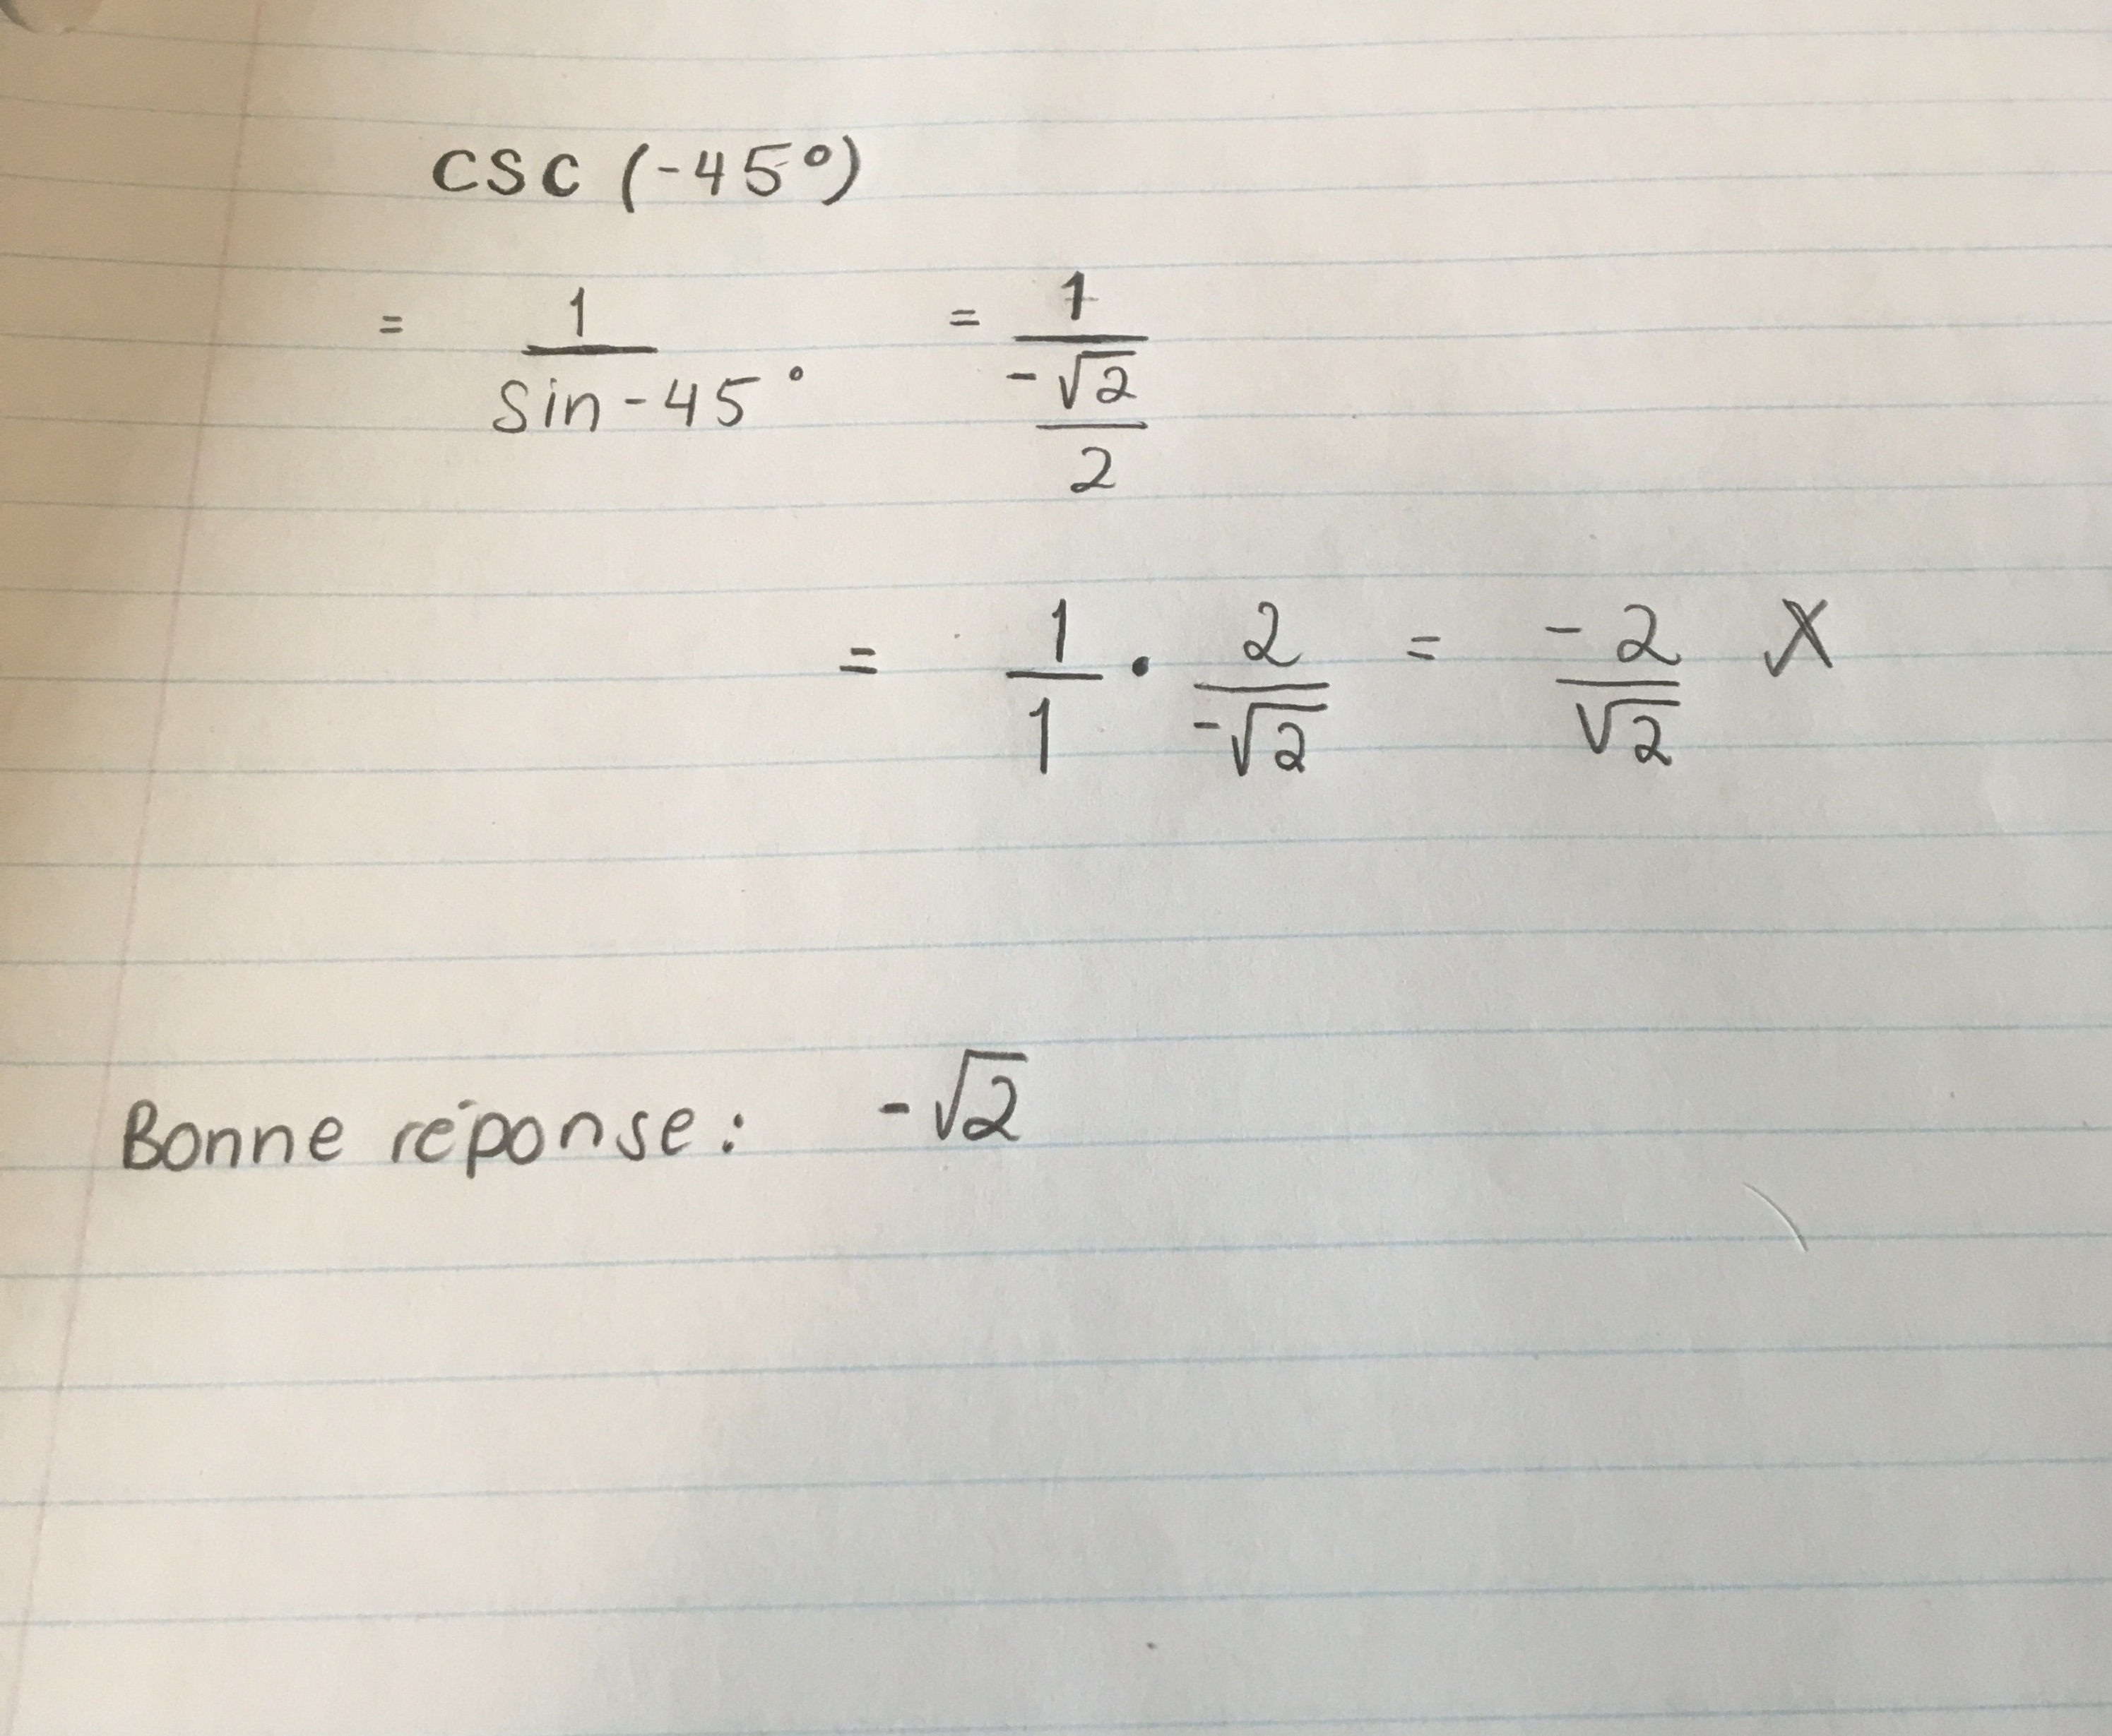 csc (-45°)
= 1/(sin-45°) = 1/(-√2/2)
= 1/1 · 2/(-√2) = -2/√2 X
Bonne réponse: -√2